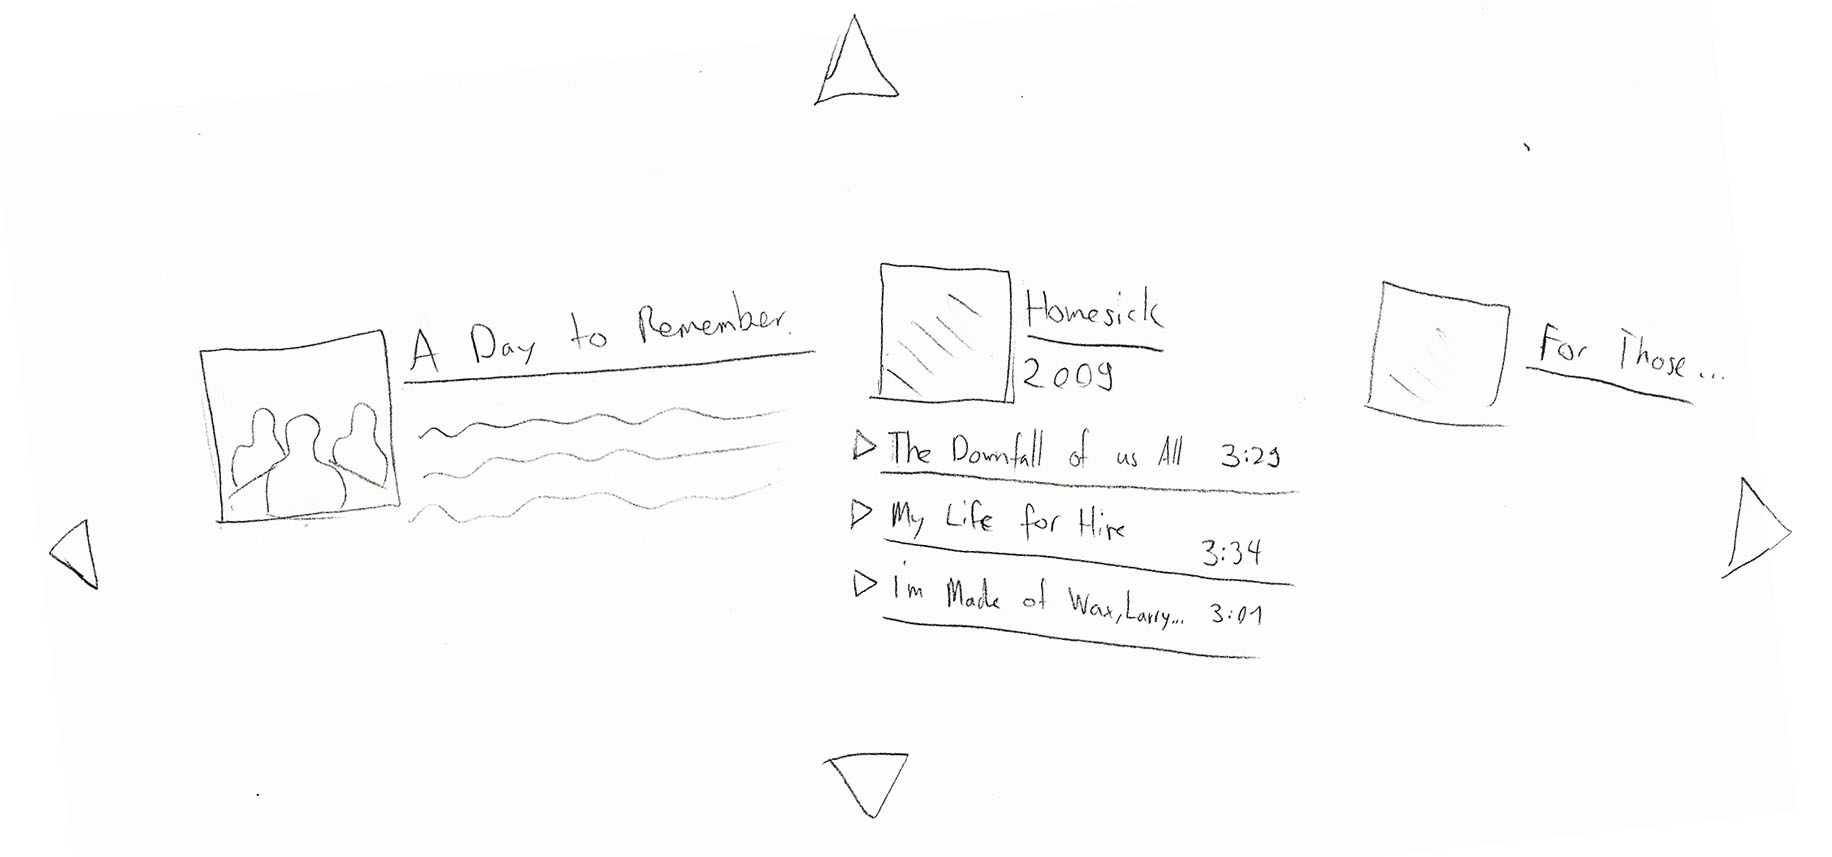 A Day to Remember.
Homesick
2009
The Downfall of us All 3:29
My Life for Hire 3:34
I'm Made of Wax, Larry... 3:01
For Those...